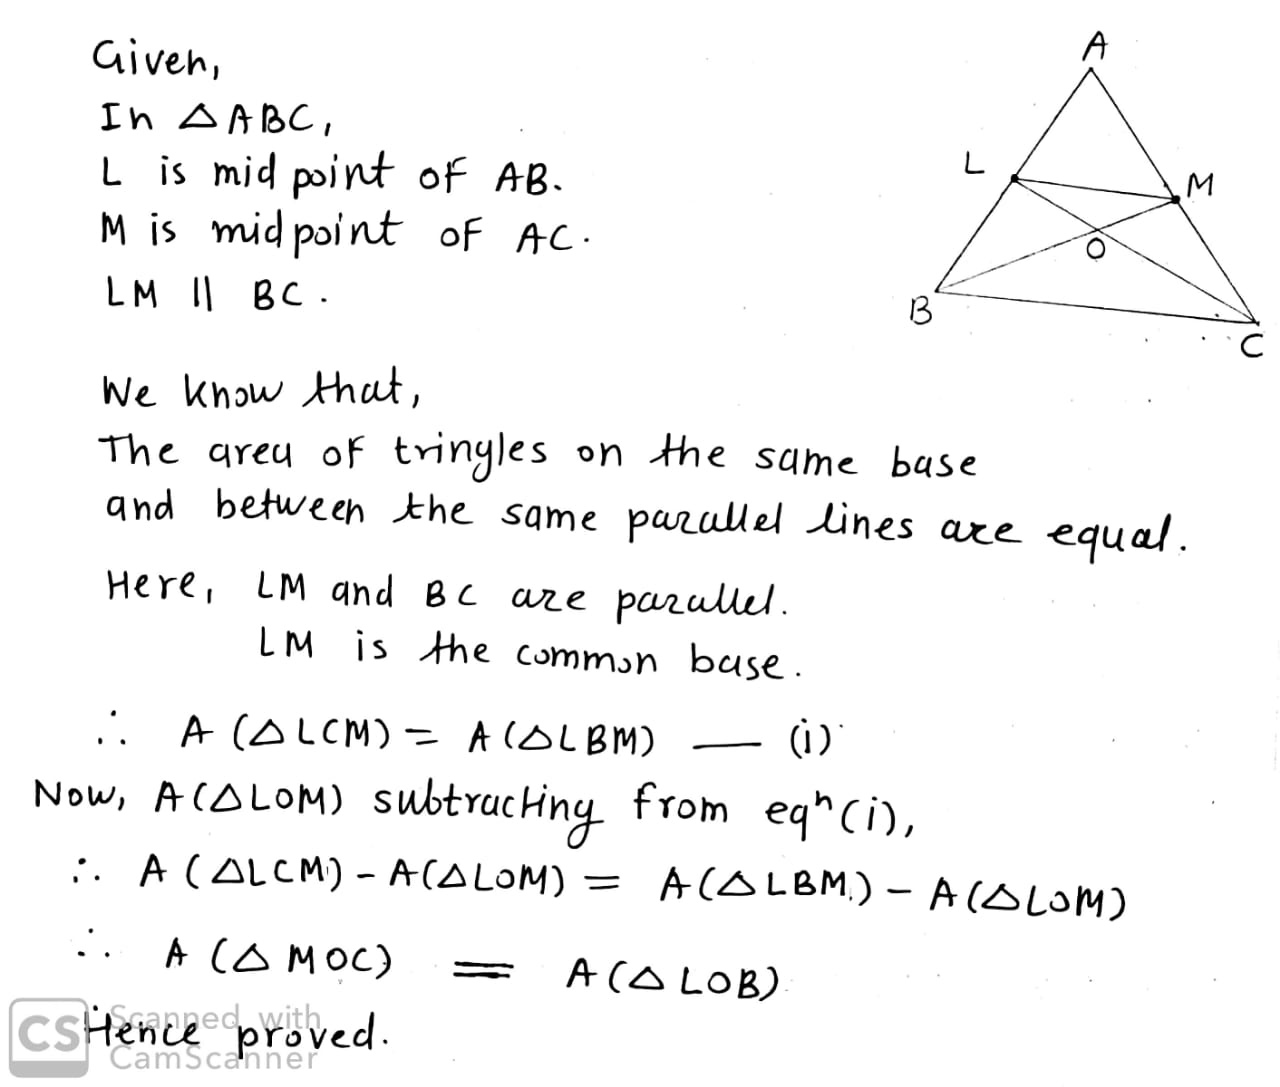 Given,
In △ABC,
L is mid point of AB.
M is midpoint of AC.
LM || BC.
A
L
M
O
B
C
We know that,
The area of tringles on the same base
and between the same parallel lines are equal.
Here, LM and BC are parallel.
LM is the common base.
∴ A (△LCM) = A (△LBM) — (i)
Now, A(△LOM) subtracting from eqⁿ(i),
∴ A (△LCM) - A(△LOM) = A(△LBM) - A(△LOM)
∴ A (△MOC) = A(△LOB)
Hence proved.
CS Scanned with
CamScanner